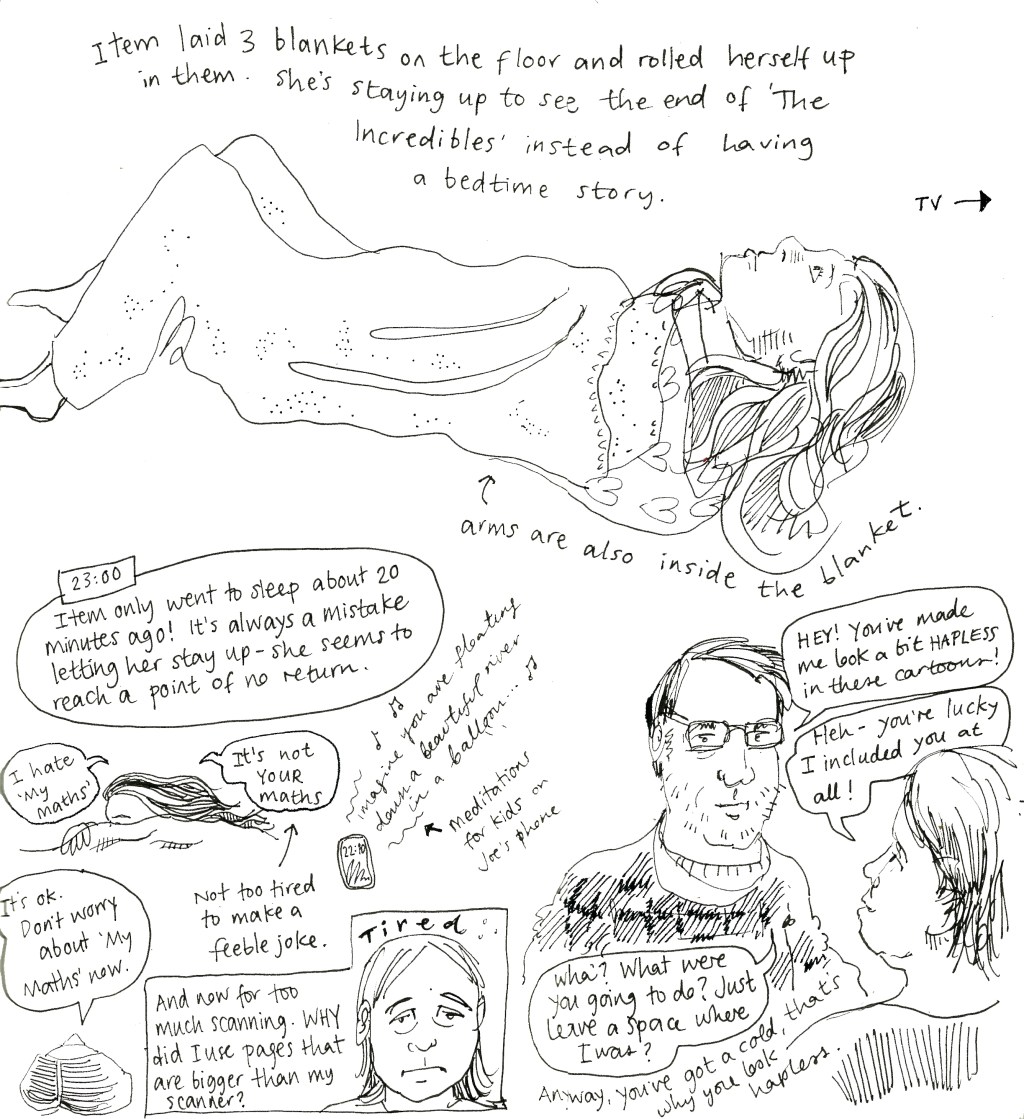 Item laid 3 blankets on the floor and rolled herself up
in them. She's staying up to see the end of 'The
Incredibles' instead of having
a bedtime story.
TV →
arms are also inside the blanket.
23:00
Item only went to sleep about 20
minutes ago! It's always a mistake
letting her stay up - she seems to
reach a point of no return.
I hate
'My
maths'
It's not
YOUR
maths
Not too tired
to make a
feeble joke.
imagine you are floating
down a beautiful river
in a balloon...
22:10
meditations
for kids on
Joe's phone
It's ok.
Don't worry
about 'My
Maths' now.
And now for too
much scanning. WHY
did I use pages that
are bigger than my
scanner?
Tired
HEY! You've made
me look a bit HAPLESS
in these cartoons!
Heh - you're lucky
I included you at
all!
wha'? What were
you going to do? Just
leave a space where
I was?
Anyway, you've got a cold, that's
why you look
hapless.